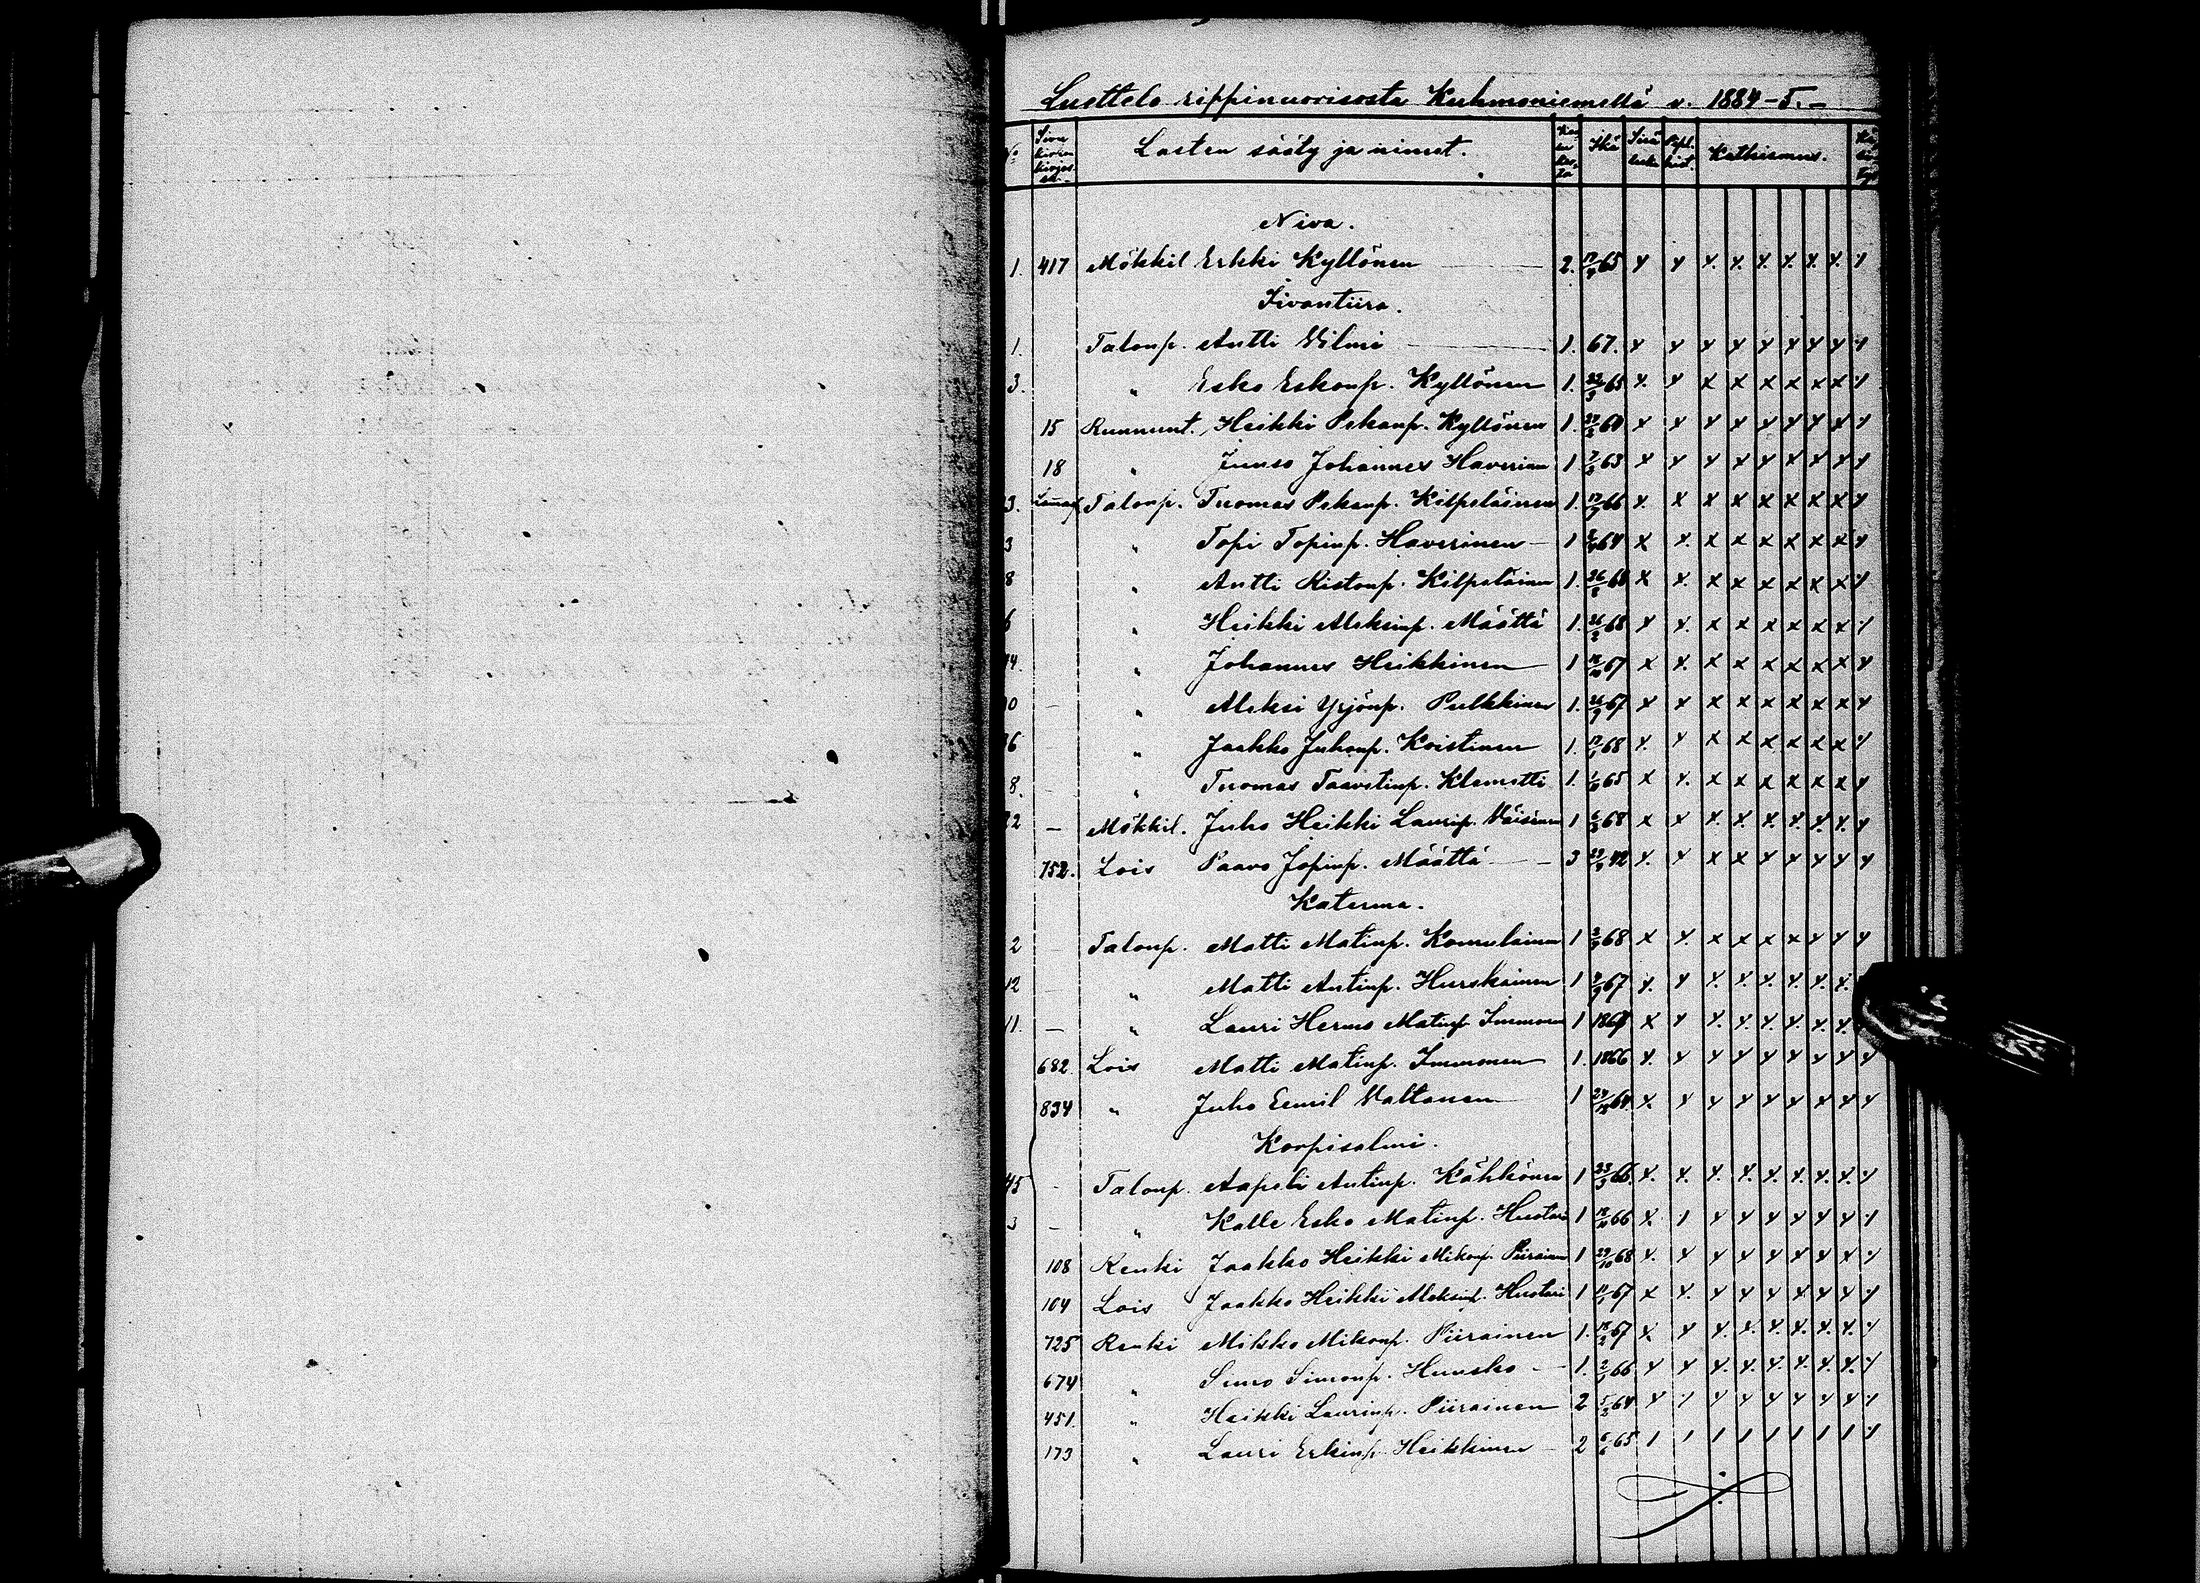 Luettelo rippinuorisosta Kuhmoniemellä v. 1884-5.
No Sivu kirkon kirjas Lasten sääty ja nimet. Ikä Sisä luku Kathismus.
Niva.
1. 417 Mökkil Erkki Kyllönen 2. 65 x x x. x. x. x. x. x. x
Iivantiira.
1. Talonp. Antti Vilmi 1. 67. x x x x x x x x x
3. " Esko Eskonp. Kyllönen 1. 22/3 65 x. x x x x x x x x
15 Ruununt. Heikki Pekanp. Kyllönen 1. x x x x x x x x x
18 " Juuso Johannes Haverinen 1 63 x x x x x x x x x
3. Talonp. Tuomas Pekanp. Kilpeläinen 1. 66 x. x x x x x x x x
3 " Topi Topinp. Haverinen 1 64 x x. x x x x x x x
8 " Antti Ristonp. Kilpeläinen 1. x x. x x x x x x x
6 " Heikki Aleksinp. Määttä 1. 68 x x. x x x x x x x
14. " Johannes Heikkinen 1 67 x x. x x x x x x x
10 " Aleksi Yrjönp. Pulkkinen 1. 67 x x x x x x x x x
16 " Jaakko Juhonp. Koistinen 1. 68 x. x x x x x x x x
8. " Tuomas Taavetinp. Klemetti 1. 65 x x. x x x x x x x
12 Mökkil. Juho Heikki Laurinp. Väisänen 1 68 x x x. x. x. x. x. x. x
752. Lois Paavo Jopinp. Määttä 3 42 x. x x x x x x x x
Katerma.
2 Talonp. Matti Matinp. Komulainen 1 68 x x. x x x x x x x
12 " Matti Antinp. Hurskainen 1 67 x. x x. x. x. x. x. x.
11. " Lauri Hermo Matinp. Immonen 1 x x x. x. x. x. x. x.
682. Lois Matti Matinp. Immonen 1. 1866 x. x x x x x x x x
834 " Juho Eemil Valtanen 1 x. x x x x x x x x
Korpisalmi.
45 Talonp. Aapeli Antinp. Kähkönen 1 23/3 66. x. x. x. x. x. x. x. x. x
3 " Kalle Esko Matinp. Huotari 1 66 x 1 x x x x x x x
108 Renki Jaakko Heikki Mikonp. Piirainen 1 29/10 68 x. x x x x x x x x
104 Lois Jaakko Heikki Aleksinp. Huotari 1 67 x x. x x x x x x x
725 Renki Mikko Mikonp. Piirainen 1. 18/2 67 x. x x. x. x. x. x. x. x
674 " Simo Simonp. Hunsko 1. 66 x x x. x. x. x. x. x. x
451. " Heikki Laurinp. Piirainen 2 64 x 1 x x x x x x x
173 " Lauri Erkinp. Heikkinen 2 6/6 65 1 1 1 1 1 1 1 1 x